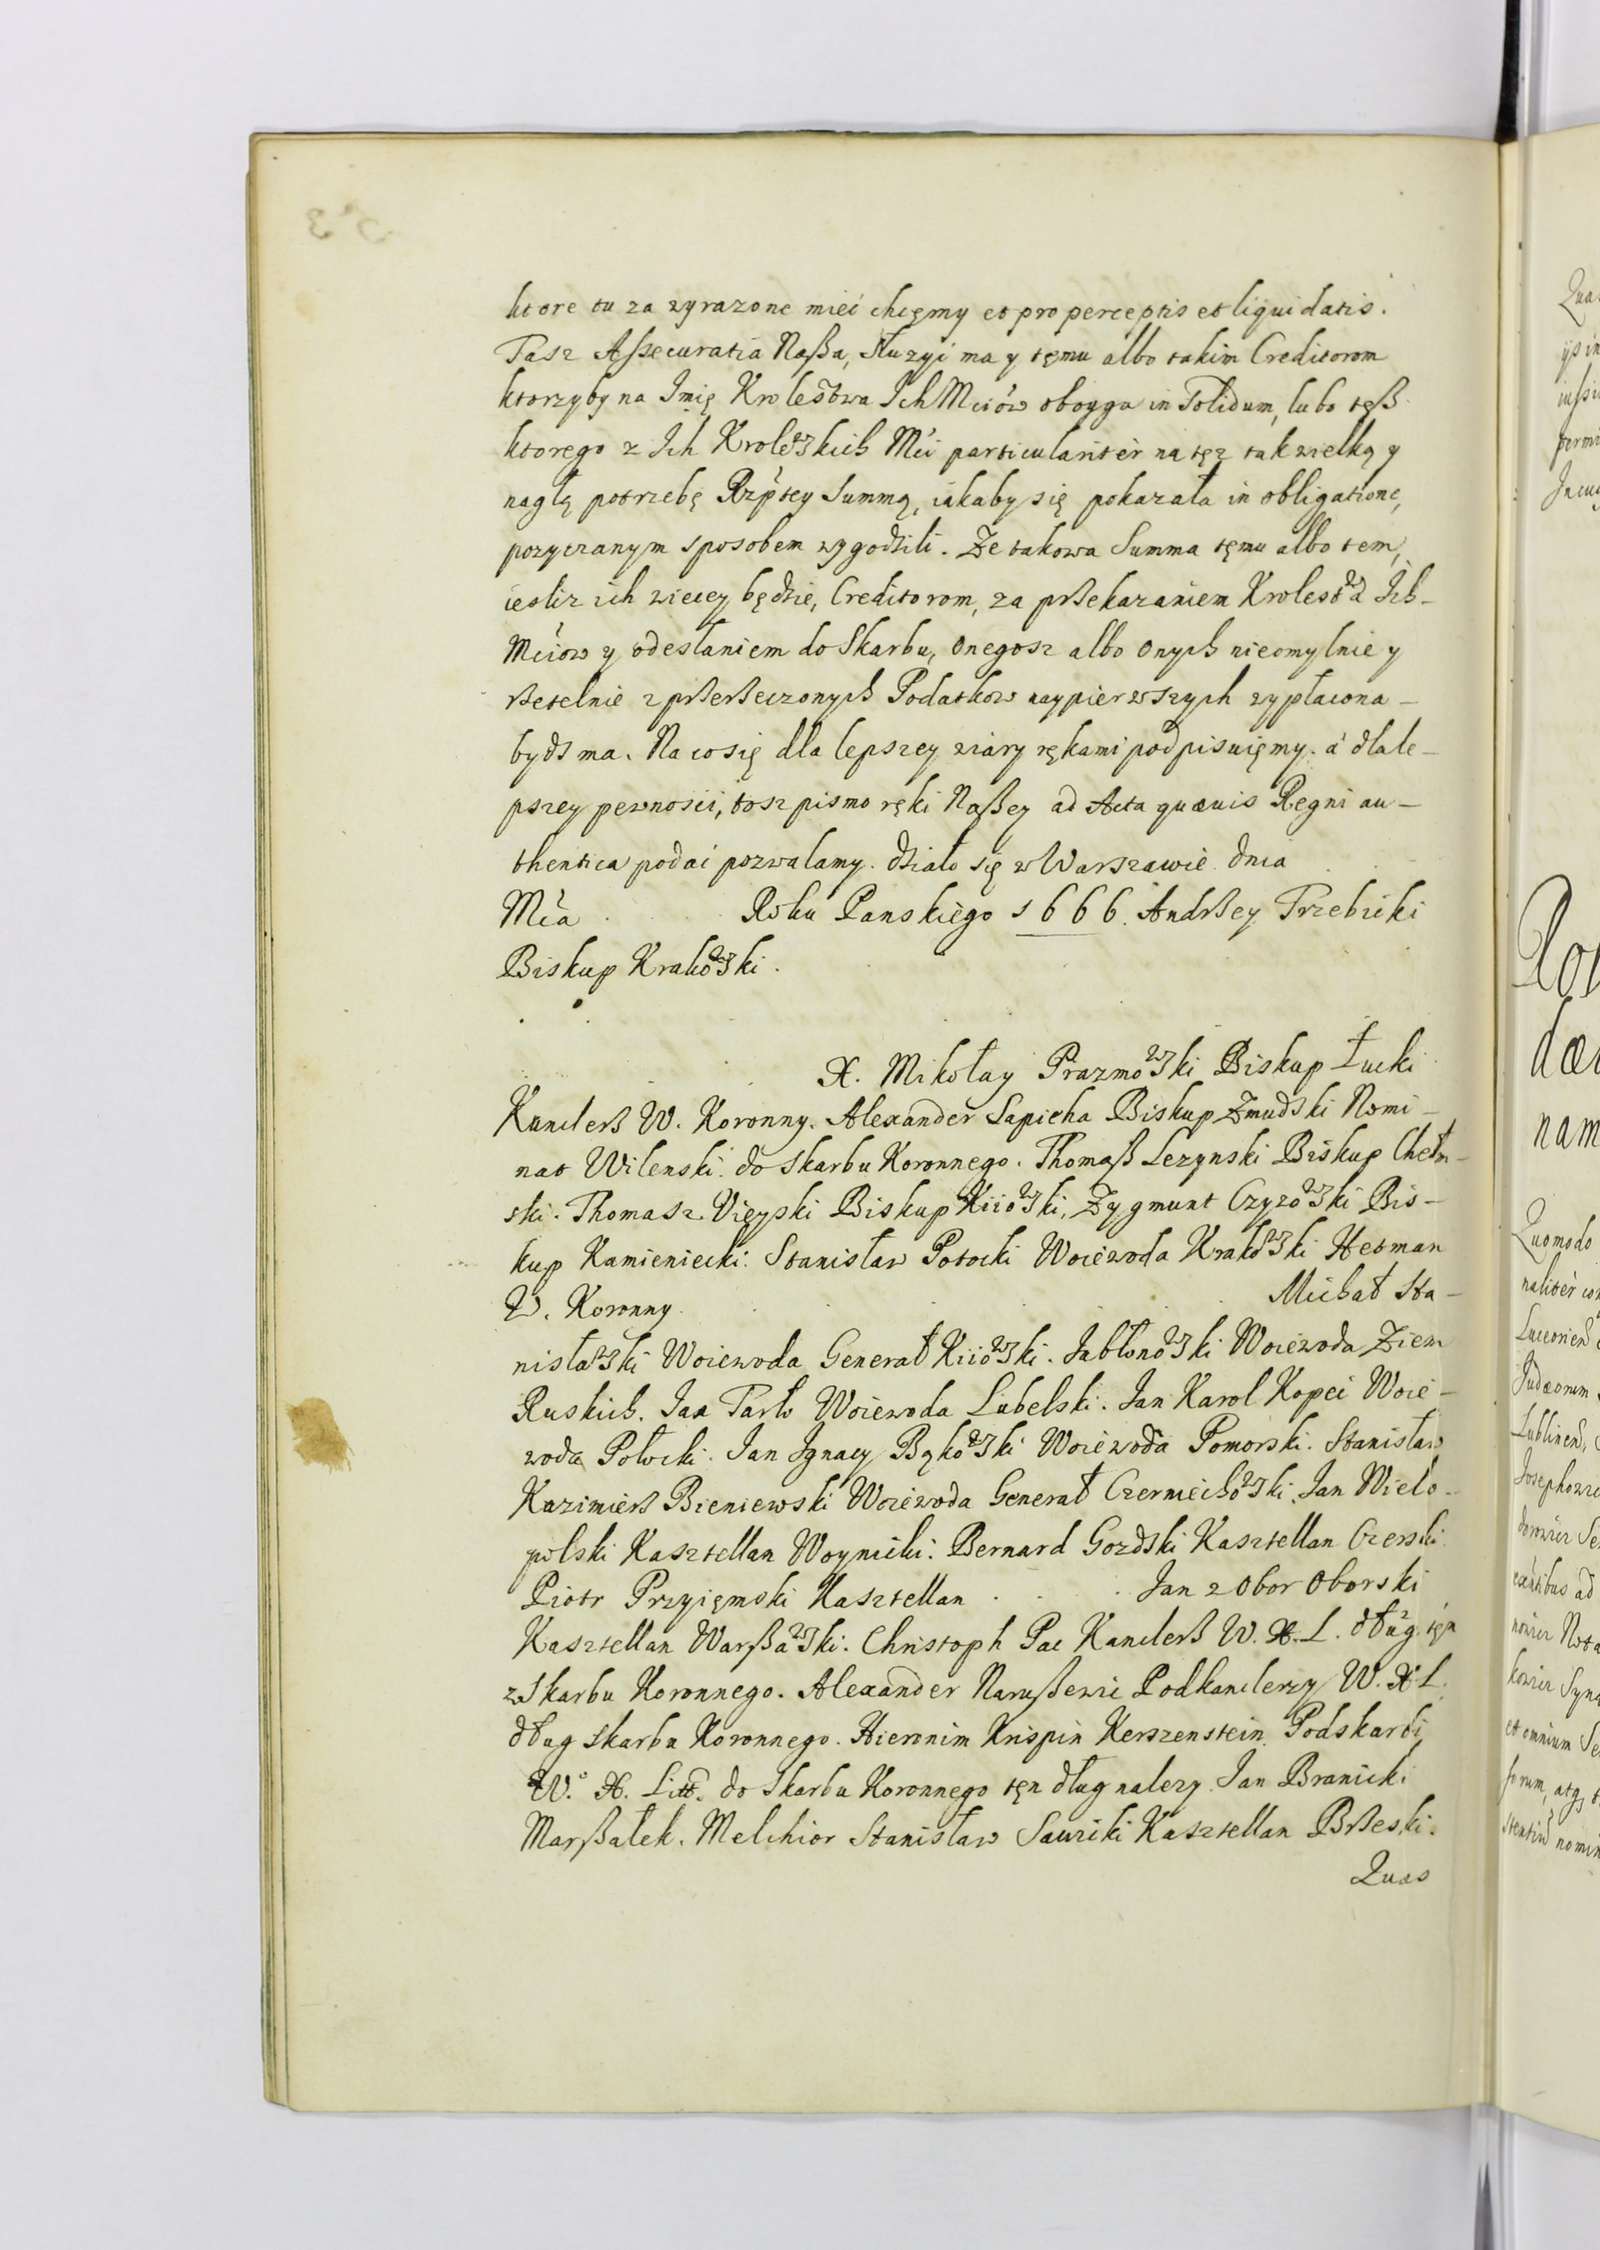 ktore tu za wyrazone mieć chcęmy et pro perceptis et liquidatis.
Tasz Assecuratia Naßa, służyć ma y tęmu albo takim Creditorom
ktorzyby na Imię Krolestwa Ich Mciów oboyga in Solidum, lubo tęß
ktorego z Ich Krolewskich Mći particularitèr na tęz tak wielką y
nagłą potrzebę Rzptey Summą, iakaby się pokazała in obligatione,
pozyczanym sposobem wygodzili. Że takowa Summa tęmu albo tem,
iesliz ich wiecey będzie, Creditorom, za przekazaniem Krolestwa Ich-
Mciow y odesłaniem do Skarbu, Onegosz albo Onych nieomylnie y
rzetelnie z przerzeczonych Podatkow naypierwszych wypłacona-
bydz ma. Na co się dla lepszey wiary rękami podpisuięmy. á dla le-
pszey pewnosci, tosz pismo ręki Naßey ad Acta quævis Regni au-
thentica podać pozwalamy. działo się w Warszawie dnia
Mća Roku Panskiègo 1666. Andrzey Trzebicki
Biskup Krakowski.
X. Mikołay Prazmowski Biskup Łucki
Kanclerz W. Koronny. Alexander Sapieha Biskup Zmudzki Nomi-
nat Wilenski do Skarbu Koronnego. Thomaß Lezynski Biskup Chełm-
ski. Thomasz Vieyski Biskup Kiiowski, Zygmunt Czyzowski Bis-
kup Kamieniecki. Stanisław Potocki Woiewoda Krakowski Hetman
W. Koronny. Michał Sta-
nisławski Woiewoda Generał Kiiowski. Jabłonowski Woiewoda Ziem
Ruskich. Jan Tarło Woiewoda Lubelski. Jan Karol Kopeć Woie-
woda Połocki. Jan Ignacy Bąkowski Woiewoda Pomorski. Stanisław
Kazimierz Bieniewski Woiewoda Generał Czerniechowski. Jan Wielo-
polski Kasztellan Woynicki. Bernard Gozdski Kasztellan Czerski
Piotr Przyięmski Kasztellan . . Jan z Obor Oborski
Kasztellan Warßawski. Christoph Pac Kanclerz W. X. L. dług tęn
z Skarbu Koronnego. Alexander Narußewic Podkanclerzy W. X L.
dług skarbu Koronnego. Hieronim Krispin Kerszenstein Podskarbi
W. X. Litt. do Skarbu Koronnego tęn dług nalezy. Jan Branicki
Marßałek. Melchior Stanisław Sawicki Kasztellan Brzeski.
Quas